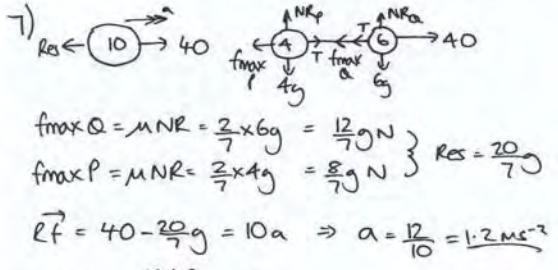 7) Res ← 10 → 40 a
fmax P 4 NRP T 4g fmax Q T 6 NRQ 6g 40
fmax Q = μNR = 2/7 × 6g = 12/7 g N
fmax P = μNR = 2/7 × 4g = 8/7 g N } Res = 20/7 g
Rf = 40 - 20/7 g = 10a ⇒ a = 12/10 = 1.2 ms⁻²